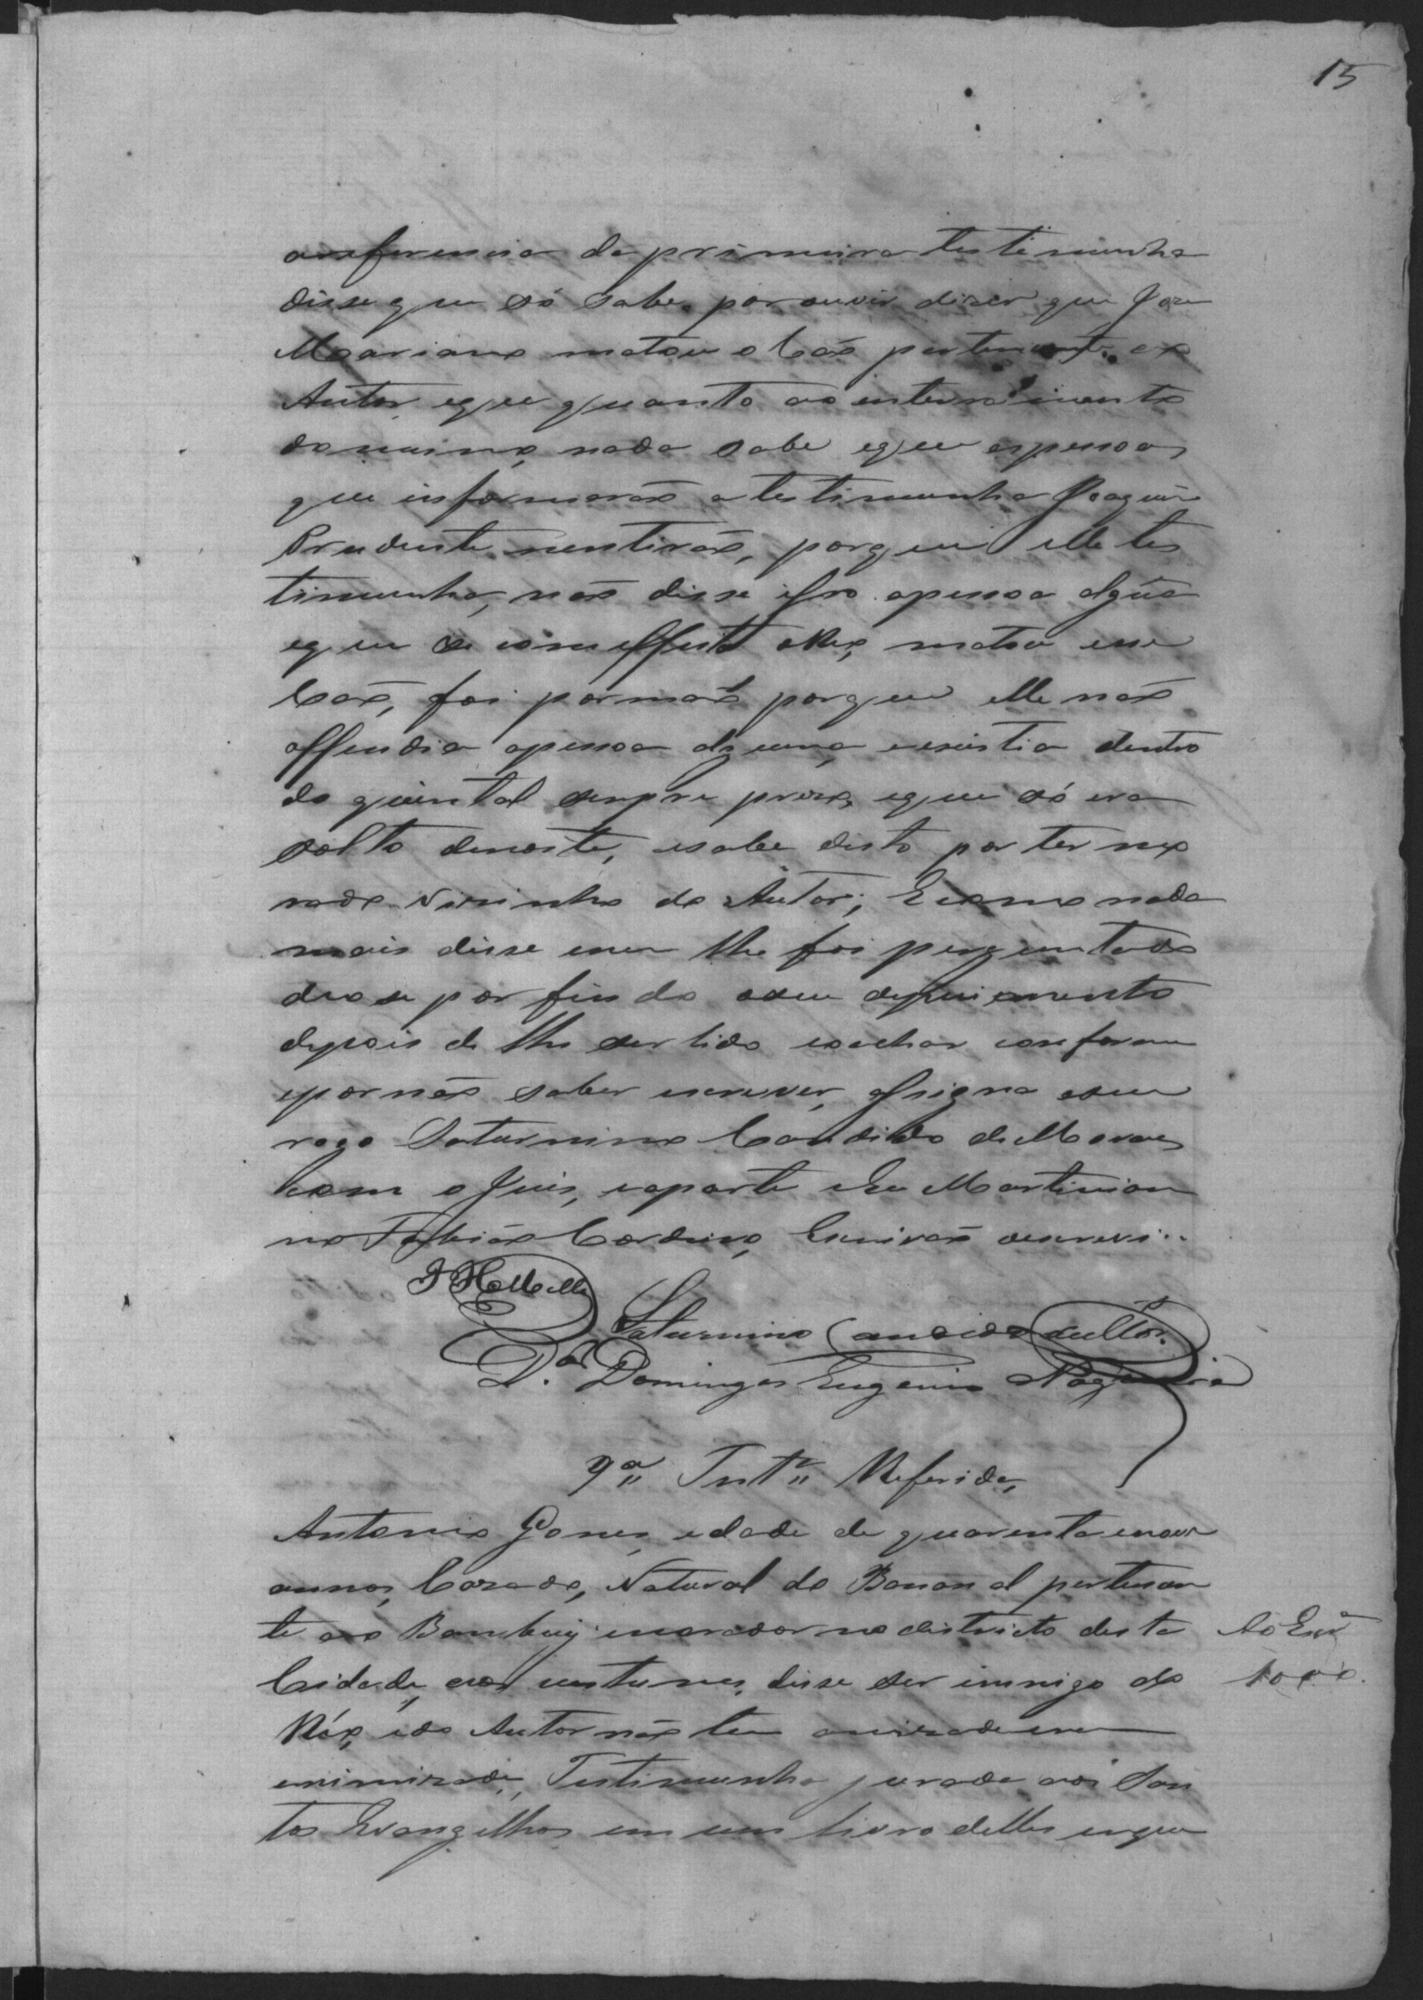 15
areferencia da primeira testimunha
disse que só sabe, por ouvir dizer que José
Mariano matou o Cão pertencente ao
Autor, eque quanto ao enterramento
domesmo, nada sabe eque aspessoas
que informarão a testimunha Joaquim
Prudente mentirão, porque elle tes
timunha, não disse isso apessoa algũa
eque se comeffeito o Réo, matou esse
Cão, foi pormáo porque elle não
offendia apessoa alguma, eexistia dentro
do quintal sempre prezo, eque só era
solto denoite, esabe disto por ter mo
rado vizinho do Autor; Ecomo nada
mais disse enem lhe foi perguntado
deose por findo oseu depoimento
depois de lhe ser lido eachar conforme
epornão saber escrever, assigna aseu
rogo Saturnino Candido de Moraes
com o Juis, eaparte eu Martinian
no Fabião Cordeiro, Escrivão oescrevi..
Saturnino Candido de Mor.
Domingos Eugenio Nogueira
9ª Testª Referida,
Antonio Gomes, edade de quarenta enove
annos, Cazado, Natural do Bananal pertencen
te ao Bambuy morador nodistricto desta
Cidade, aos custumes, disse ser inmigo do
Réo, edo Autor não tem amizade nem
enimizade, Testimunha jurada aos San
tos Evangelhos em um livro delles eque
Ao Esc.
1000.